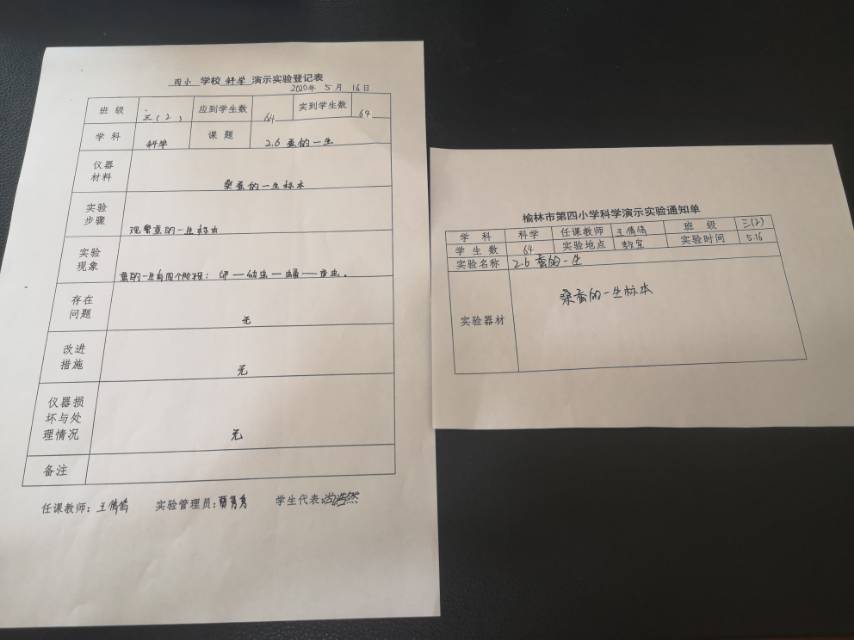 四小 学校 科学 演示实验登记表
2020年 5月 16日
班 级 三(2) 应到学生数 64 实到学生数 64
学 科 科学 课 题 2.6 蚕的一生
仪器材料 桑蚕的一生标本
实验步骤 观察蚕的一生标本
实验现象 蚕的一生有四个阶段：卵—幼虫—蛹—成虫。
存在问题 无
改进措施 无
仪器损坏与处理情况 无
备注
任课教师： 王倩 实验管理员： 学生代表：
榆林市第四小学科学演示实验通知单
学 科 科学 任课教师 王倩 班 级 三(2)
学 生 数 64 实验地点 教室 实验时间 5.16
实验名称 2.6 蚕的一生
实验器材 桑蚕的一生标本